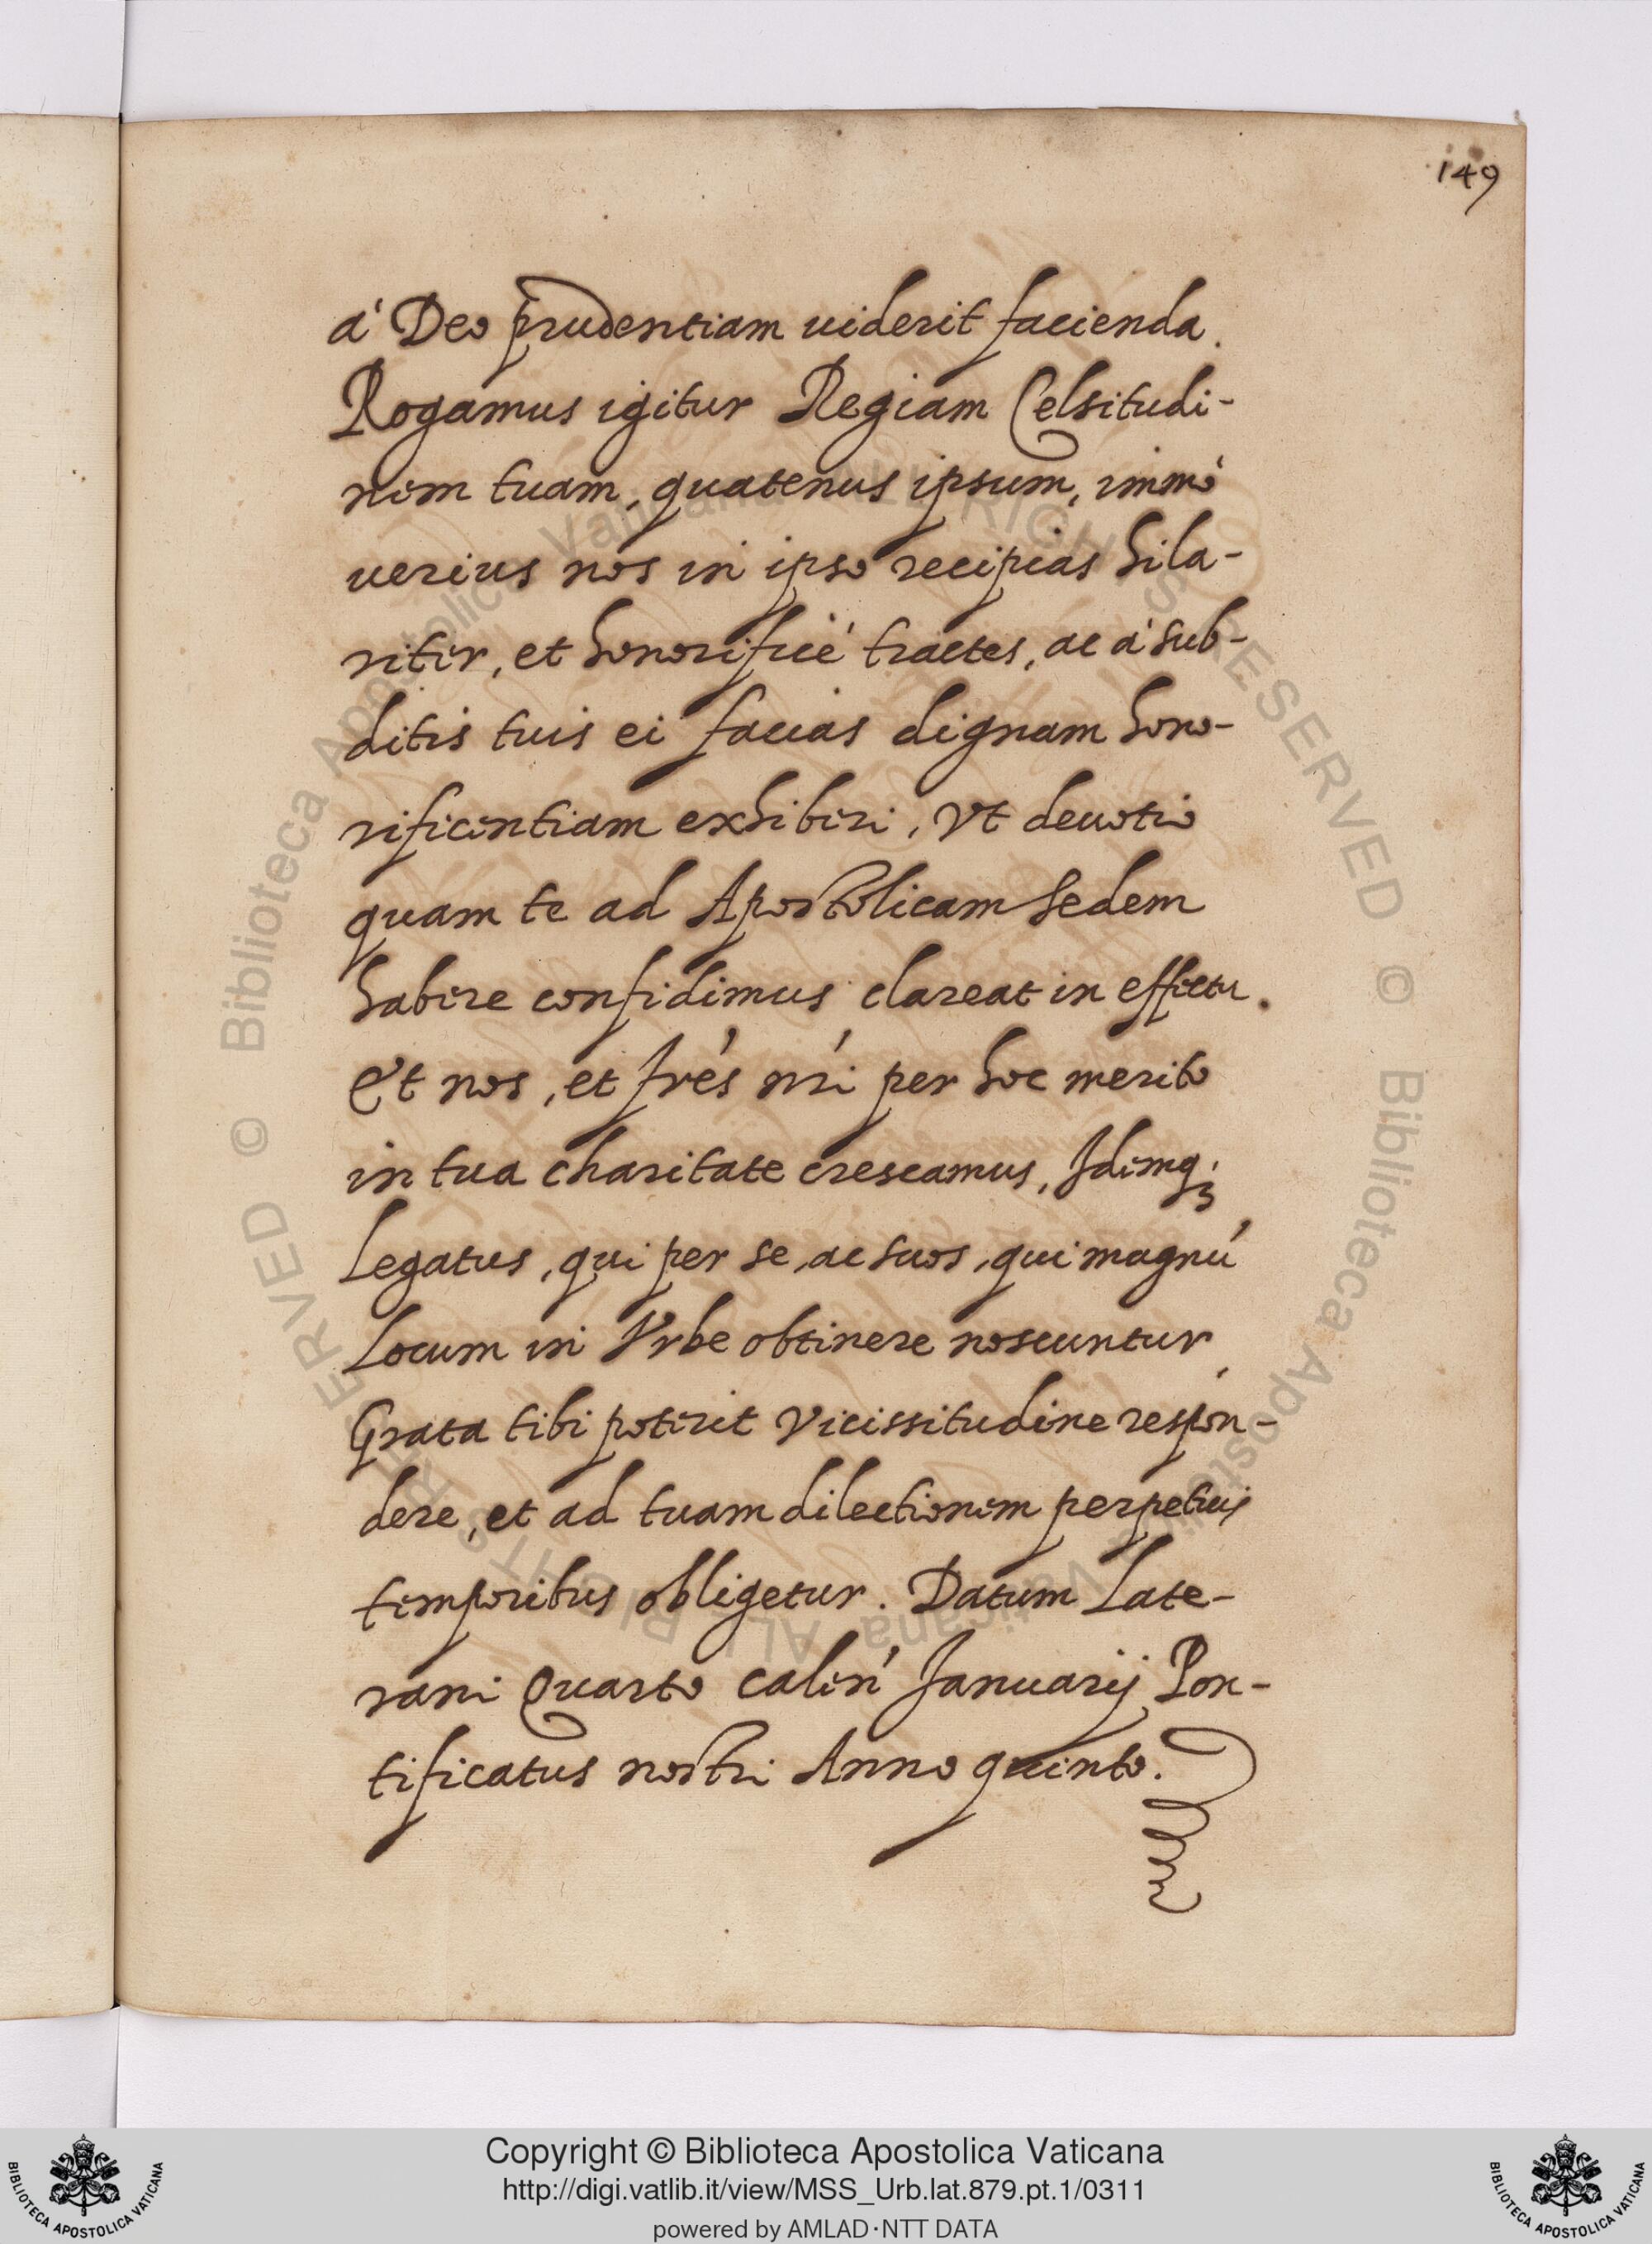 149
à Deo prudentiam uiderit facienda.
Rogamus igitur Regiam Celsitudi-
nem tuam, quatenus ipsum, immò
uerius nos in ipso recipias hila-
riter, et honorificè tractes, ac à sub-
ditis tuis ei facias dignam hono-
rificentiam exhiberi, Vt deuotio
quam te ad Apostolicam Sedem
habere confidimus clareat in effectu.
Et nos, et fŕes nŕi per hoc merito
in tua charitate crescamus, Idemq;
Legatus, qui per se, ac suos, qui magnú
Locum in Vrbe obtinere noscuntur
Grata tibi poterit Vicissitudine respon-
dere, et ad tuam dilectionem perpetuis
temporibus obligetur. Datum Late-
rani Quarto caleń Januarij Pon-
tificatus nostri Anno quinto.
© Biblioteca Apostolica Vaticana ALL RIGHTS RESERVED © Biblioteca Apostolica Vaticana ALL RIGHTS RESERVED
Copyright © Biblioteca Apostolica Vaticana
http://digi.vatlib.it/view/MSS_Urb.lat.879.pt.1/0311
powered by AMLAD·NTT DATA
BIBLIOTECA APOSTOLICA VATICANA
BIBLIOTECA APOSTOLICA VATICANA